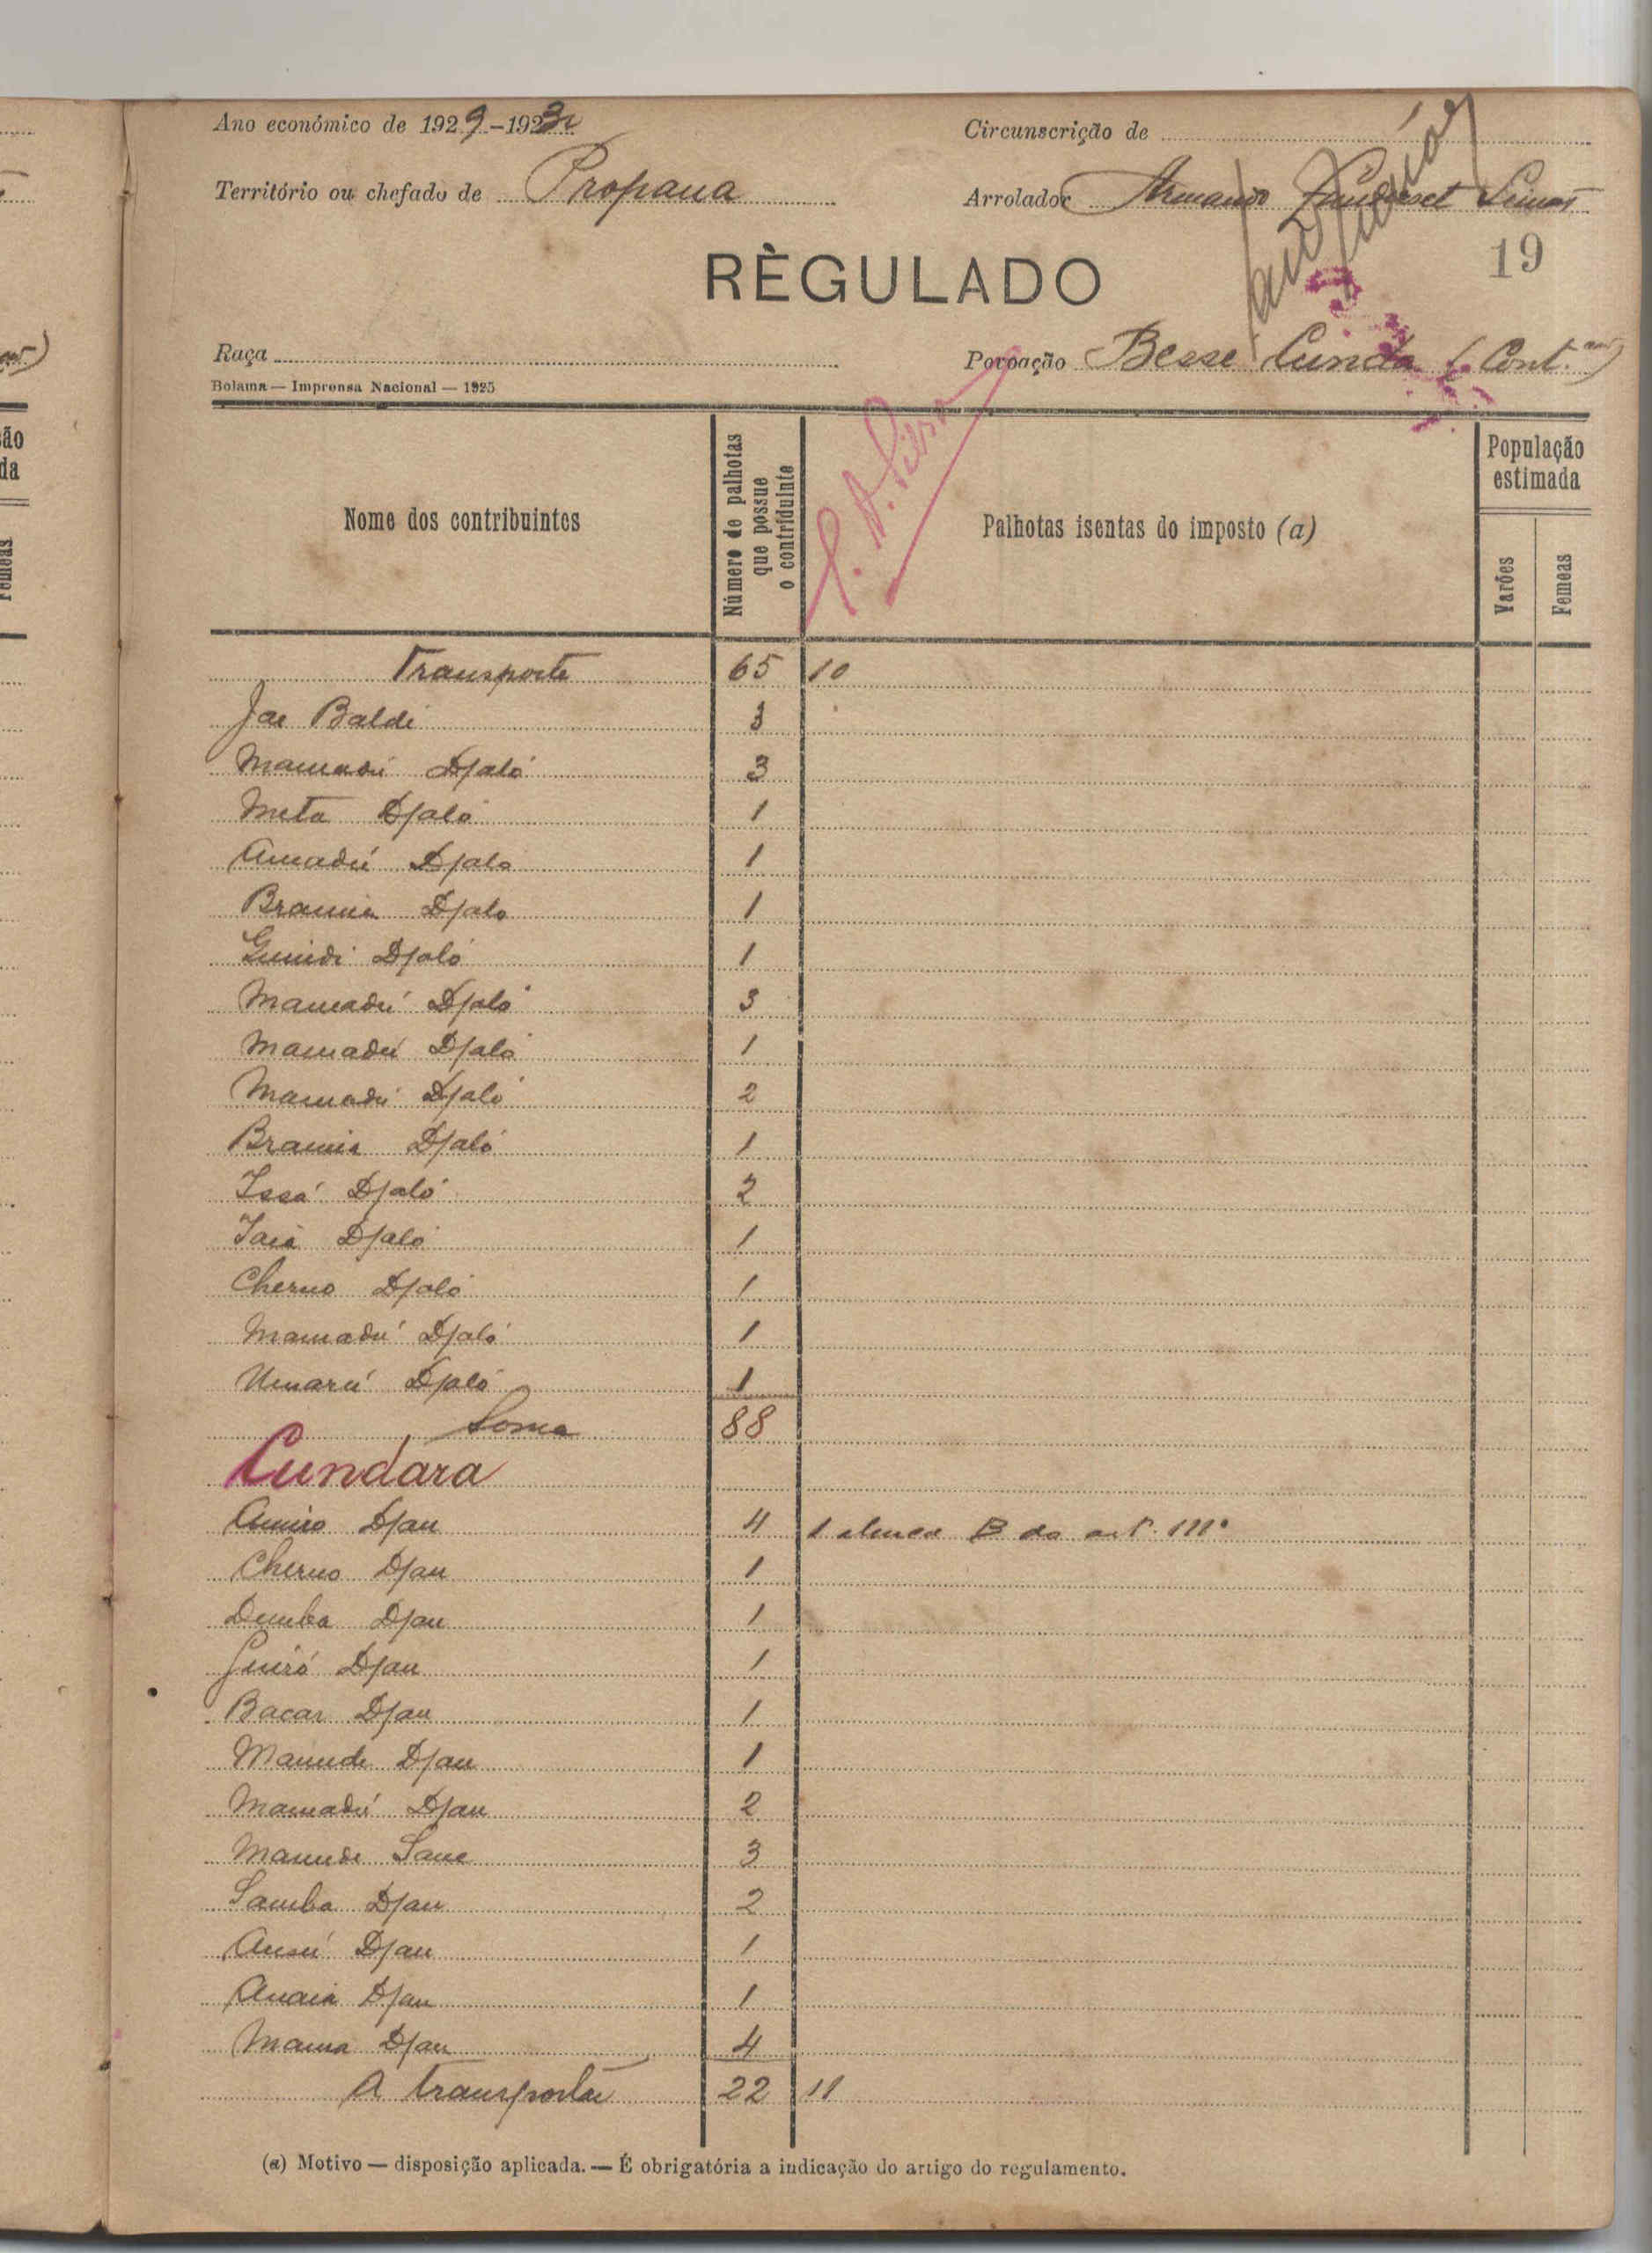 Ano económico de 1929-193
Circunscrição de
Território ou chefado de Propana
Arrolador Armando Simas
RÈGULADO
19
Raça
Povoação Besse Cunda (Cont.)
Bolama — Imprensa Nacional — 1925
Nome dos contribuintes
Número de palhotas que possue o contribuinte
Palhotas isentas do imposto (a)
População estimada
Varões
Femeas
Transporte 65 10
Jae Baldé 3
Mamadú Djaló 3
Meta Djaló 1
Amadú Djalo 1
Braima Djalo 1
Djaló 1
Mamadú Djaló 3
Mamadú Djaló 1
Mamadú Djaló 2
Braima Djaló 1
Issá Djaló 2
Iaia Djaló 1
Cherno Djaló 1
Mamadú Djaló 1
Umarú Djaló 1
Soma 88
Cundara
Djau 4 1 alinea B do art. 111º
Cherno Djau 1
Demba Djau 1
Djau 1
Bacar Djau 1
Djau 1
Mamadú Djau 2
Sane 3
Samba Djau 2
Ansú Djau 1
Djau 1
Mama Djau 4
A transportar 22 11
(a) Motivo — disposição aplicada. — É obrigatória a indicação do artigo do regulamento.